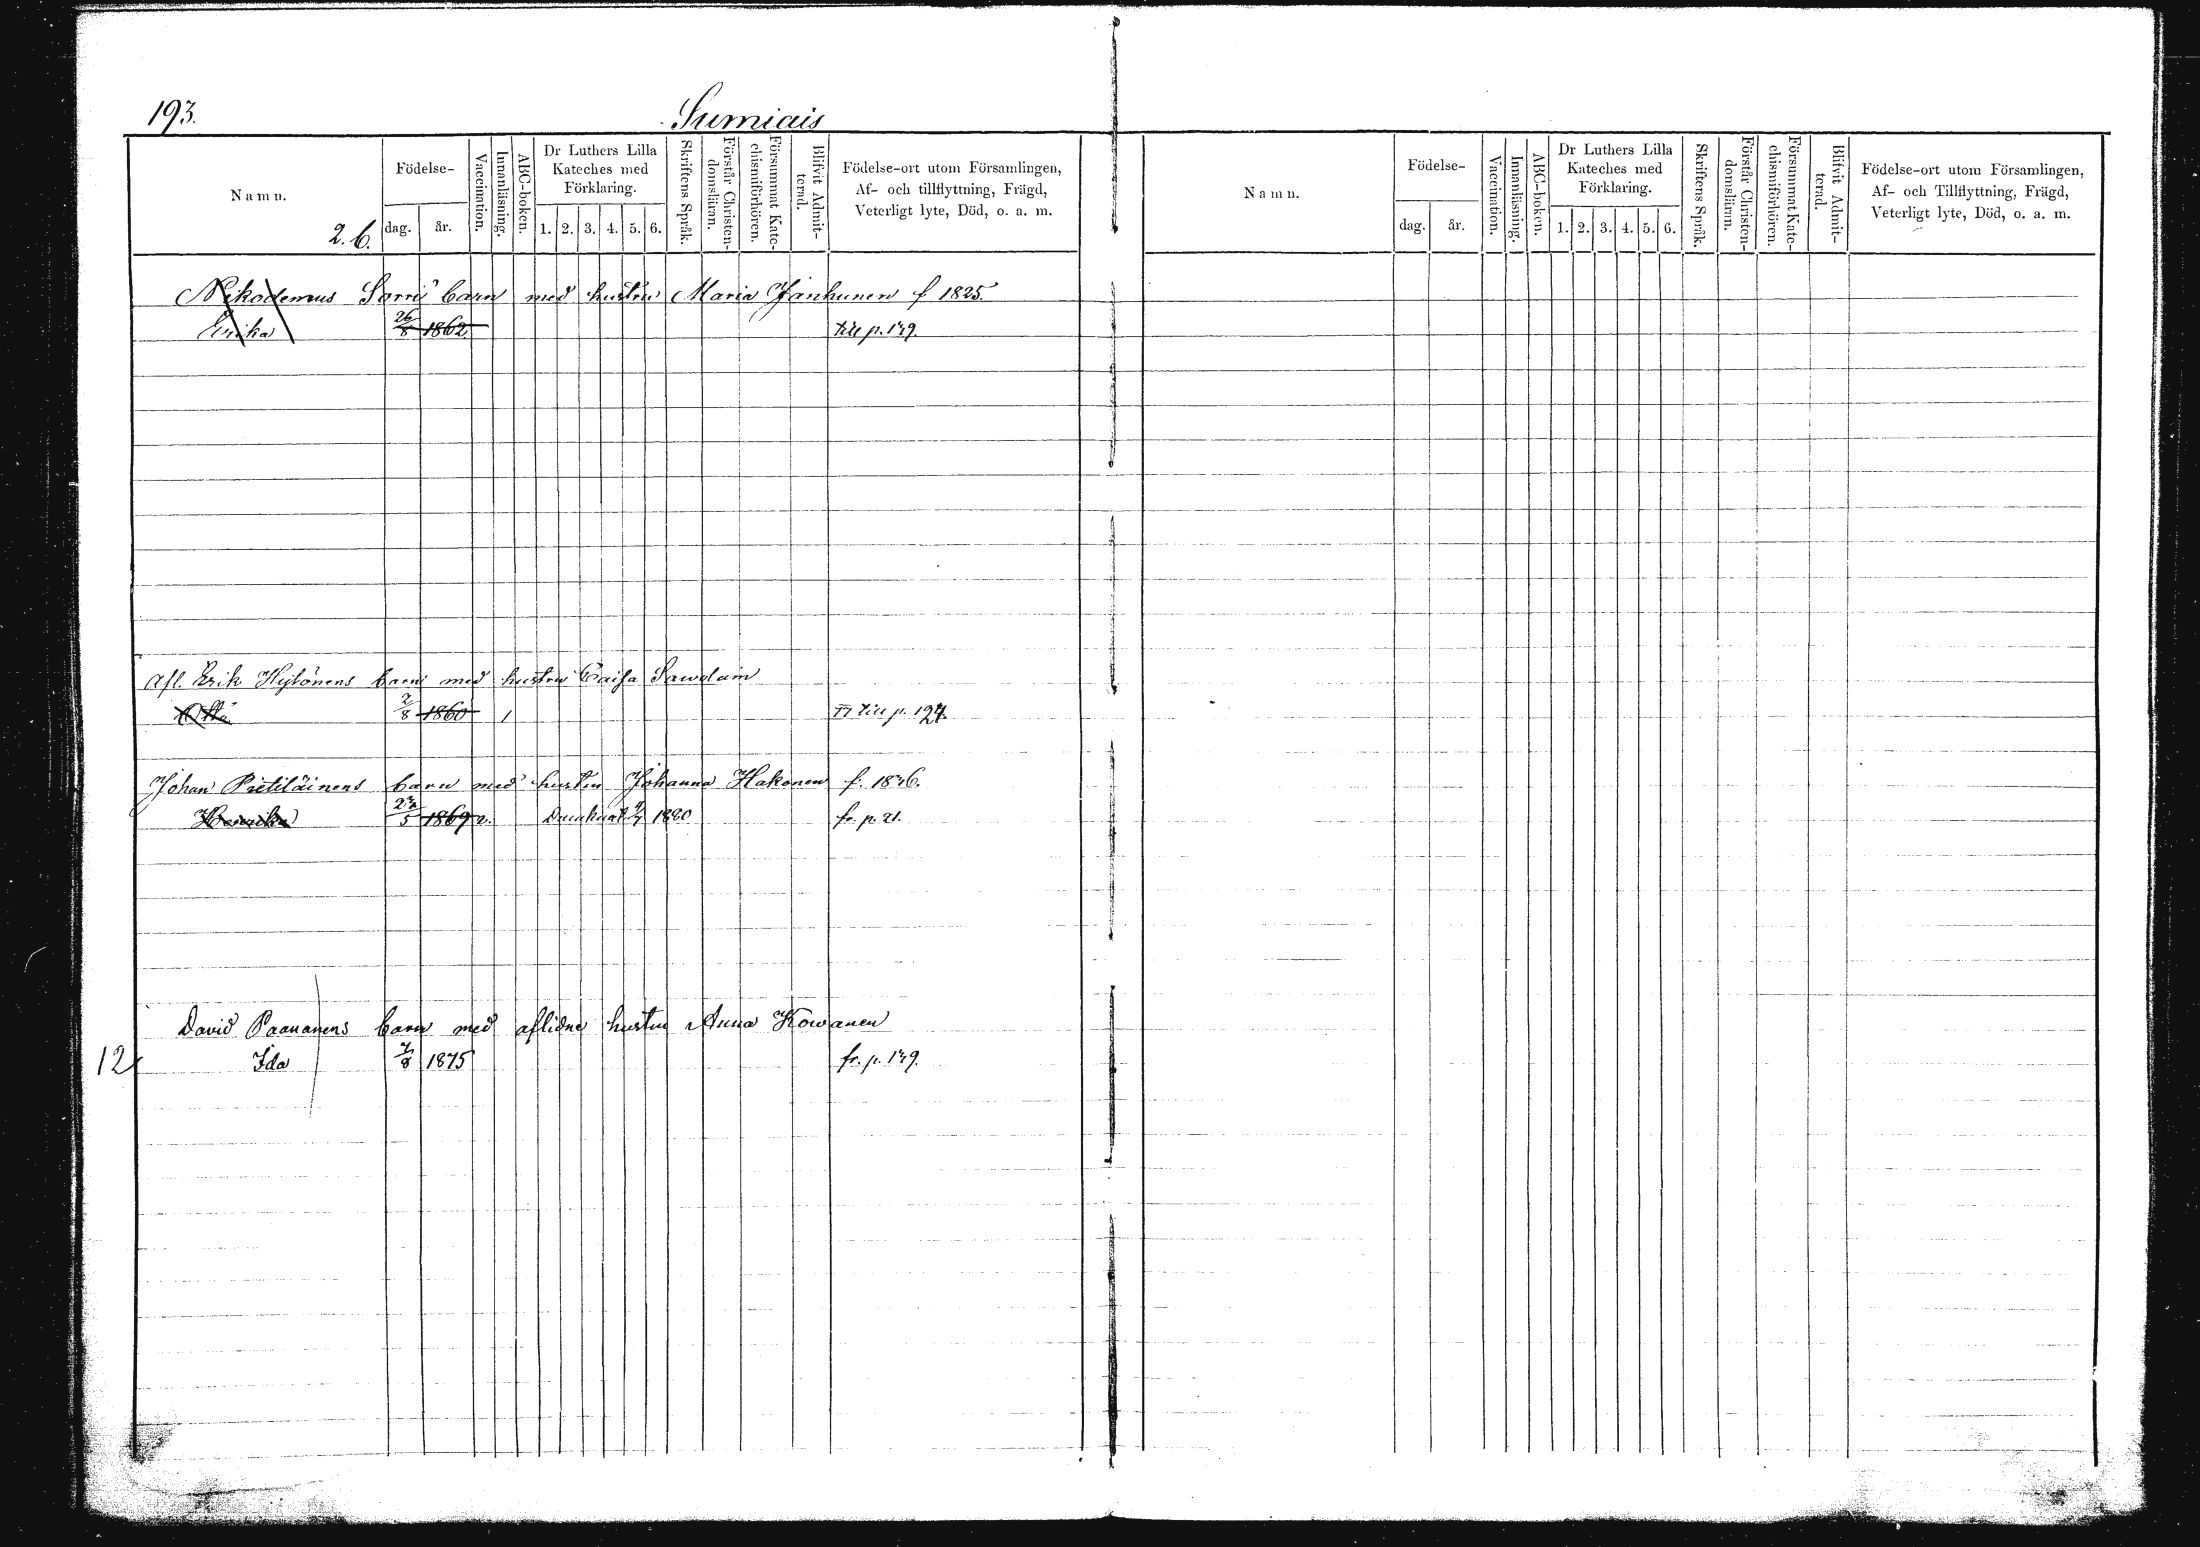 193.
Sumiais
Namn.
2. 6.
Födelse-
dag.
år.
Vaccination.
Innanläsning.
ABC-boken.
Dr Luthers Lilla
Kateches med
Förklaring.
1. 2. 3. 4. 5. 6.
Skriftens Språk.
Förstår Christen-
domsläran.
Försummat Kate-
chismiförhören.
Blifvit Admit-
terad.
Födelse-ort utom Församlingen,
Af- och tillflyttning, Frägd,
Veterligt lyte, Död, o. a. m.
Nikodemus Sorri barn med hustru Maria Janhunen f 1825.
Erika 26/8 1862. till p. 149.
Afl. Erik Hytönens barn med hustru Caisa Sawolain
Otto 2/8 1860 1 till p. 124.
Johan Pietiläinens barn med hustru Johanna Hakonen f. 1846.
5 1869 v. Drunknat 1880 fr. p. 21.
David Paananens barn med aflidne hustru Anna Kowanen
12 Ida 7/8 1875 fr. p. 149.
Namn.
Födelse-
dag.
år.
Vaccination.
Innanläsning.
ABC-boken.
Dr Luthers Lilla
Kateches med
Förklaring.
1. 2. 3. 4. 5. 6.
Skriftens Språk.
Förstår Christen-
domsläran.
Försummat Kate-
chismiförhören.
Blifvit Admit-
terad.
Födelse-ort utom Församlingen,
Af- och Tillflyttning, Frägd,
Veterligt lyte, Död, o. a. m.